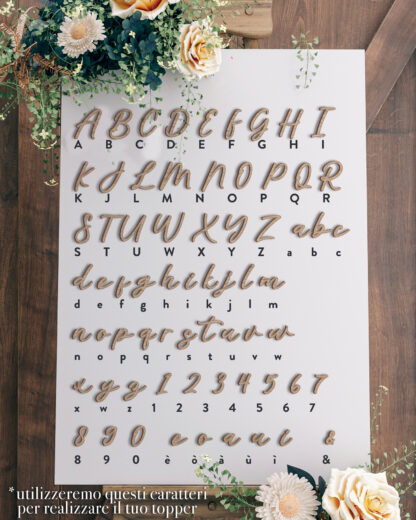 A B C D E F G H I
A B C D E F G H I
K J L M N O P Q R
K J L M N O P Q R
S T U W X Y Z a b c
S T U W X Y Z a b c
d e f g h i k j l m
d e f g h i k j l m
n o p q r s t u v w
n o p q r s t u v w
x y z 1 2 3 4 5 6 7
x w z 1 2 3 4 5 6 7
8 9 0 è ò à ù ì &
8 9 0 è ò à ù ì &
*utilizzeremo questi caratteri
per realizzare il tuo topper